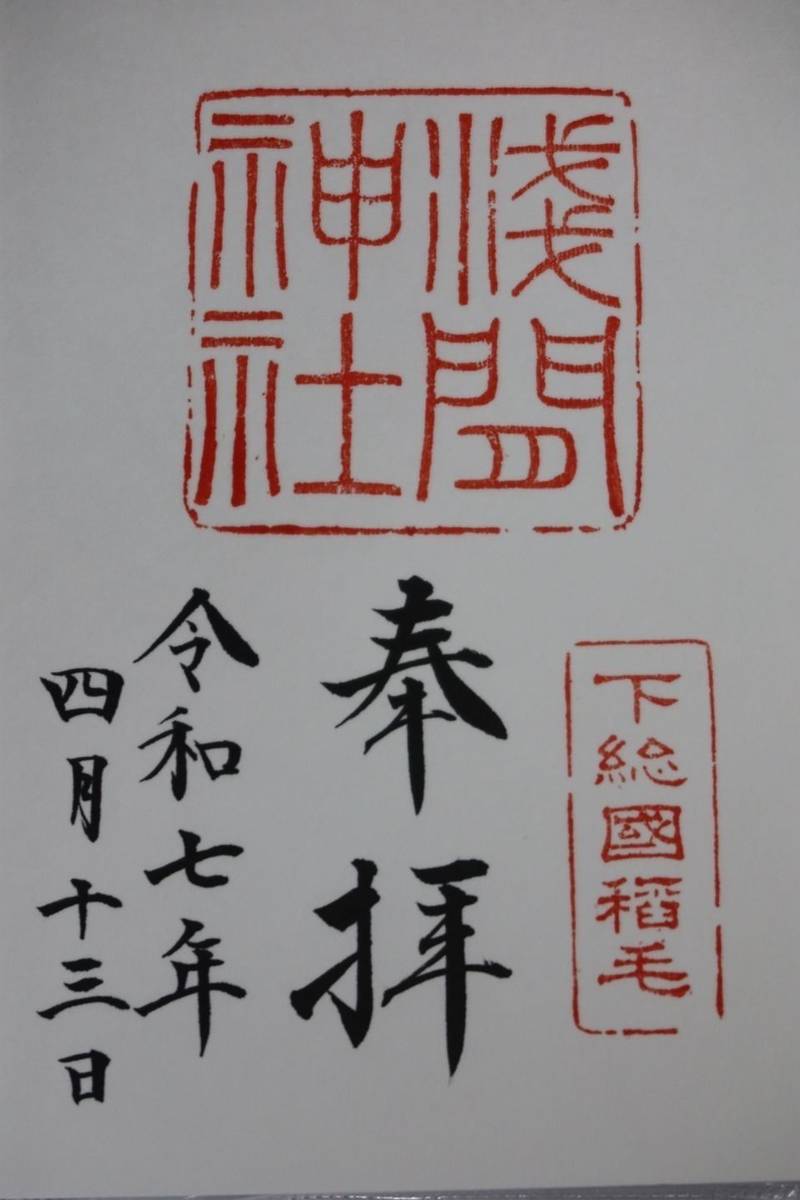 淺間
神社
下総國稲毛
奉拝
令和七年
四月十三日